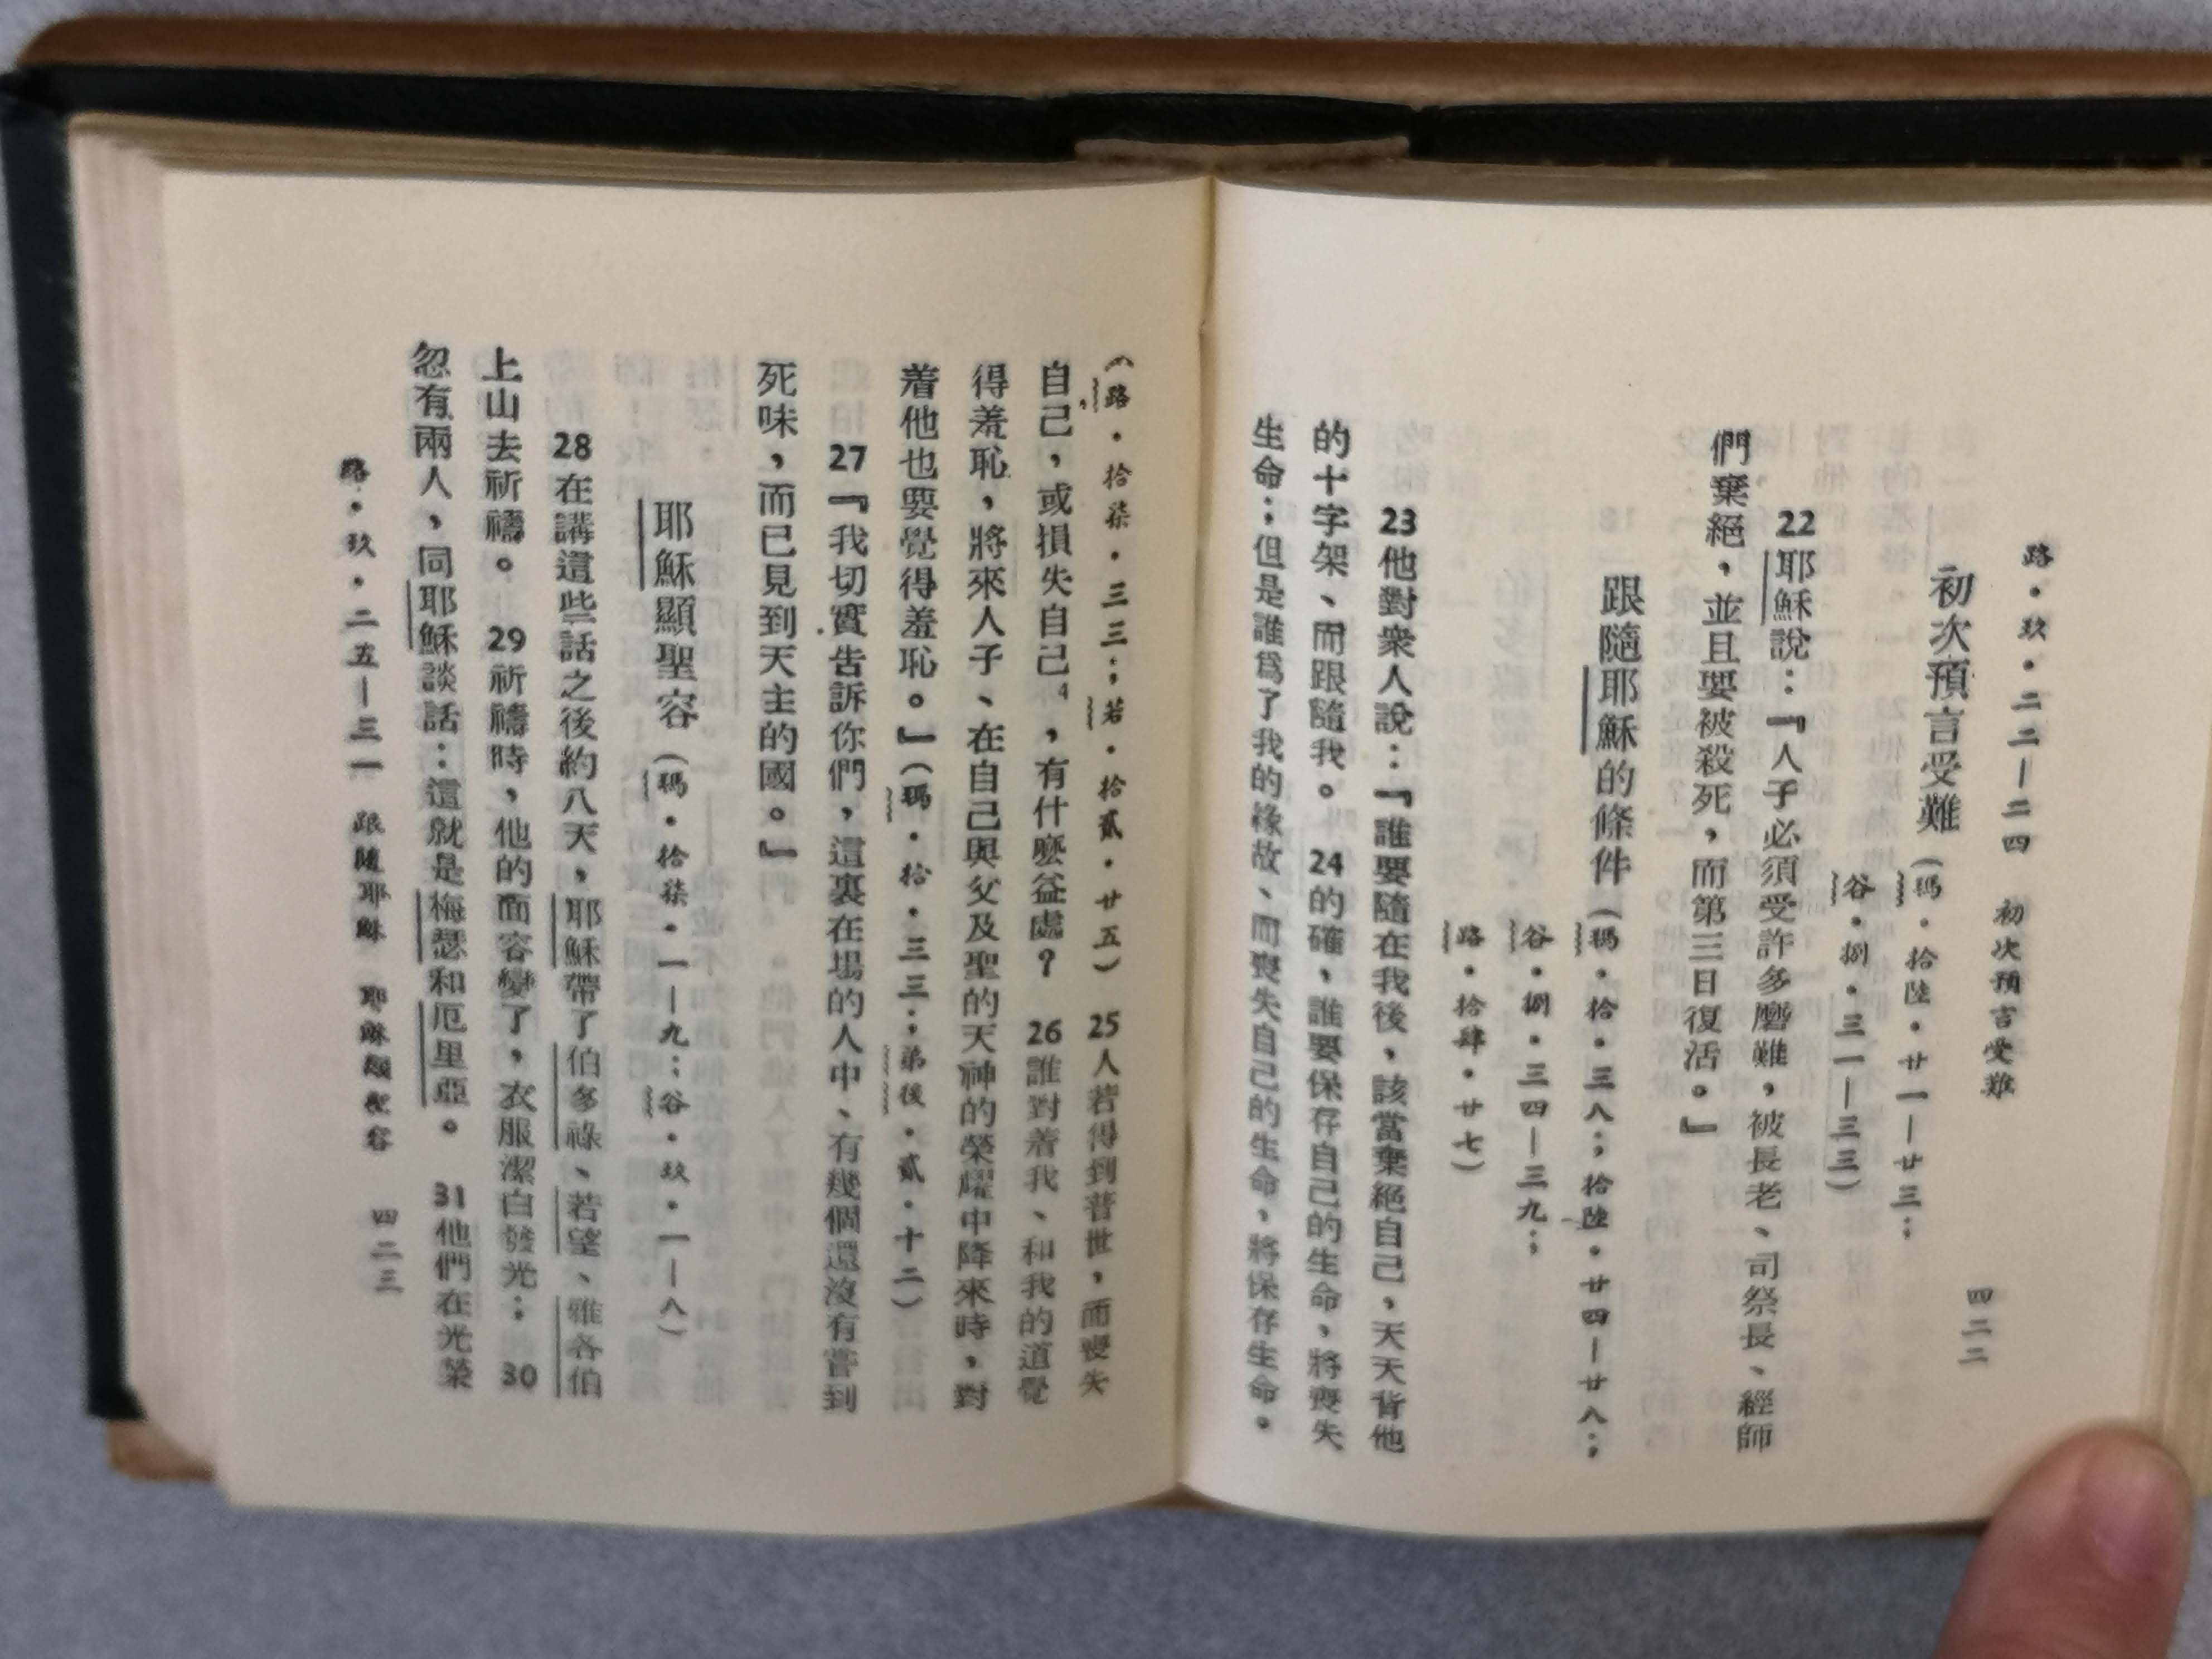 路·玖·二二—二四　初次預言受難　四二二
初次預言受難（瑪·拾陸·廿一—廿三；
谷·捌·三一—三三）
22耶穌說：『人子必須受許多磨難，被長老、司祭長、經師
們棄絕，並且要被殺死，而第三日復活。』
跟隨耶穌的條件（瑪·拾·三八；拾陸·廿四—廿八；
谷·捌·三四—三九；
路·拾肆·廿七）
23他對衆人說：『誰要隨在我後，該當棄絕自己，天天背他
的十字架、而跟隨我。24的確，誰要保存自己的生命，將喪失
生命；但是誰爲了我的緣故、而喪失自己的生命，將保存生命。
（路·拾柒·三三；若·拾貳·廿五）25人若得到普世，而喪失
自己，或損失自己⁴，有什麼益處？26誰對着我、和我的道覺
得羞恥，將來人子、在自己與父及聖的天神的榮耀中降來時，對
着他也要覺得羞恥。』（瑪·拾·三三；弟後·貳·十二）
27『我切實告訴你們，這裏在場的人中、有幾個還沒有嘗到
死味，而已見到天主的國。』
耶穌顯聖容（瑪·拾柒·一—九；谷·玖·一—八）
28在講這些話之後約八天，耶穌帶了伯多祿、若望、雅各伯
上山去祈禱。29祈禱時，他的面容變了，衣服潔白發光；30
忽有兩人，同耶穌談話：這就是梅瑟和厄里亞。31他們在光榮
路·玖·二五—三一　跟隨耶穌　耶穌顯聖容　四二三